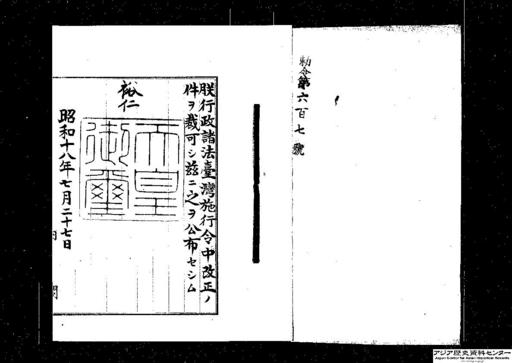 勅令第六百七號
朕行政諸法臺灣施行令中改正ノ
件ヲ裁可シ茲ニ之ヲ公布セシム
裕仁
天皇御璽
昭和十八年七月二十七日
アジア歴史資料センター
Japan Center for Asian Historical Records